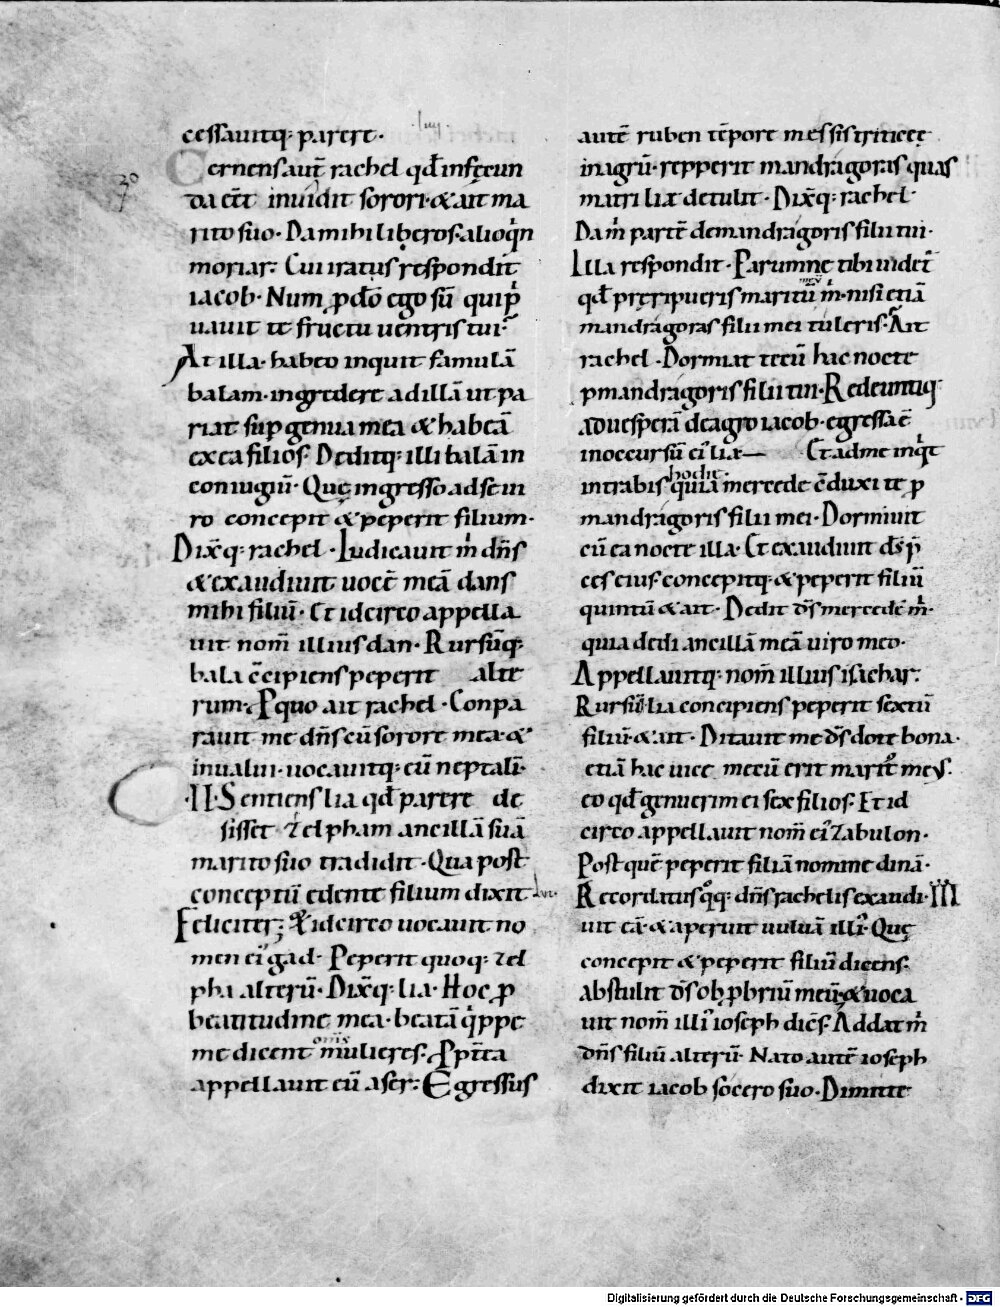 cessauitq; parere·
Cernens aut̄ rachel qđ infęcun
da eēt inuidit sorori·& ait ma
rito suo· Da mihi liberos· alioq̇n
moriar; Cui iratus respondit
iacob· Num ꝓ dō ego sū qui ṗ
uauit te fructu uentris tui;
At illa· habeo inquit famulā
balam· ingredere ad illā ut pa
riat sup genua mea & habeā
ex ea filios; Deditq; illi balā in
coniugiū· Quę ingresso ad se ui
ro concepit & peperit filium·
Dix̄q; rachel· Iudicauit m̍ dn̄s
& exaudiuit uocē meā dans
mihi filiū· Et idcirco appella
uit nom̄ illius dan· Rursūq;
bala c̄cipiens peperit alte
rum· ꝓ quo ait rachel· Conpa
rauit me dn̄s cū sorore mea· &
inualui· uocauitq; eū neptalī·
II· Sentiens lia qđ parere de
sisset zelpham ancillā suā
marito suo tradidit· Qua post
conceptū edente filium dixit
Feliciter; & idcirco uocauit no
men ei᾽ gad· Peperit quoq; zel
pha alterū· Dix̄q; lia· Hoc ꝓ
beatitudine mea· beatā q̇ppe
me dicent om̄s mulieres; Ppt̄ea
appellauit eū aser; Egressus
autē ruben tēpore messis triticeę
in agrū· repperit mandragoras quas
matri liæ detulit· Dix̄q; rachel
Da m̍ partē de mandragoris filii tui·
Illa respondit· Parumne tibi uidet̄
qđ pręripueris maritū meū m̍· nisi etiā
mandragoras filii mei tuleris· Ait
rachel· Dormiat tecū hac nocte
ꝑ mandragoris filii tui· Redeuntiq;
ad uesperā de agro iacob· egressa ē
in occursū ei᾽ lia— Et ad me inq̇t
intrabis hodie· quia mercede c̄duxi te ꝓ
mandragoris filii mei· Dormiuit
cū ea nocte illa· Et exaudiuit dś p̄
ces eius· concepitq; & peperit filiū
quintū & ait· Dedit dś mercedē m̍·
quia dedi ancillā meā uiro meo·
Appellauitq; nom̄ illius isachar;
Rursū lia concipiens peperit sextū
filiū· & ait· Ditauit me dś dote bona·
etiā hac uice mecū erit marit᾽ meus·
eo qđ genuerim ei sex filios; Et id
circo appellauit nom̄ ei᾽ zabulon·
Post quē peperit filiā nomine dinā·
Recordatus q̊q; dn̄s rachelis exaudi· III
uit eā· & aperuit uuluā illi᾽· Quę
concepit & peperit filiū dicens·
abstulit dś obꝓbriū meū· & uoca
uit nom̄ illi᾽ ioseph dicēs· Addat m̍
dn̄s filiū alterū· Nato autē ioseph
dixit iacob socero suo· Dimitte
Digitalisierung gefördert durch die Deutsche Forschungsgemeinschaft - DFG